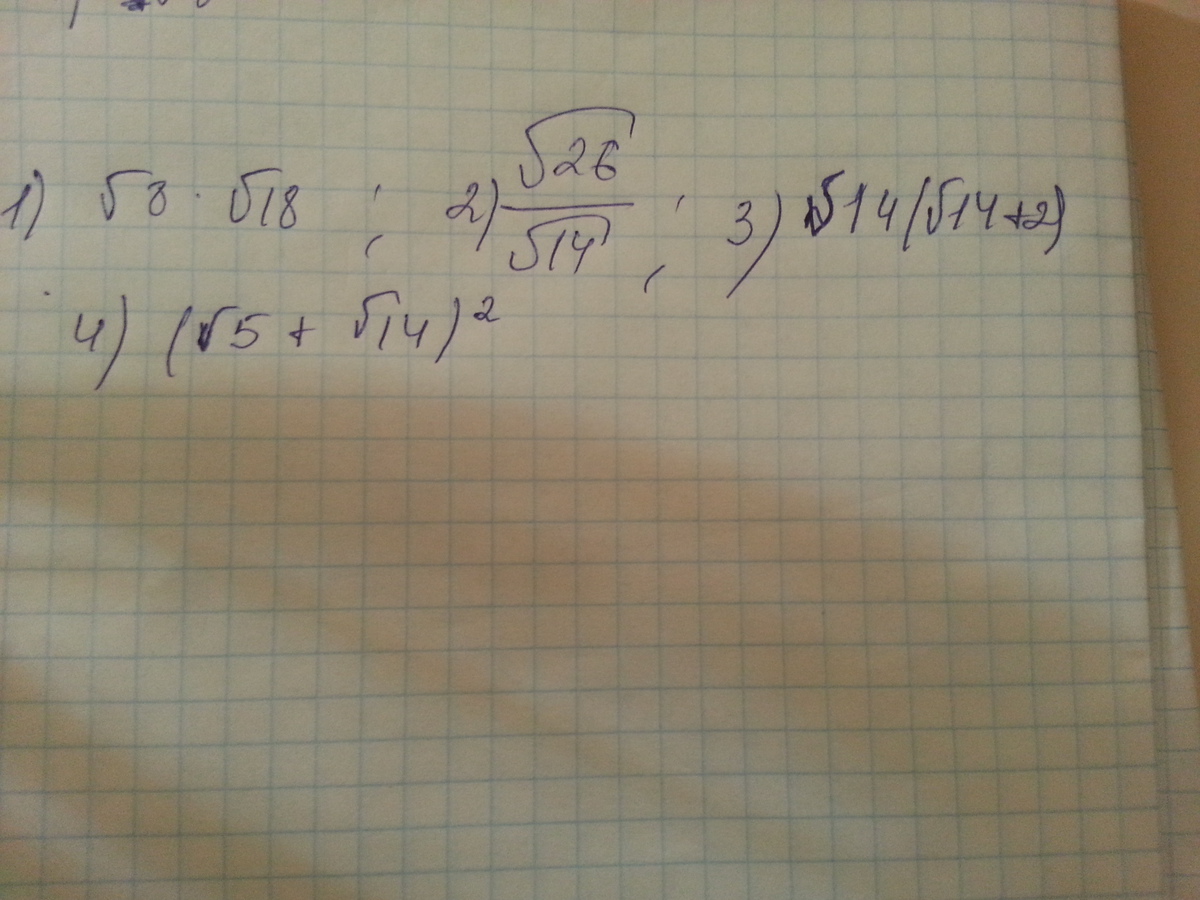 1) √8 · √18 ; 2) √26/√14 ; 3) √14(√14+2)
4) (√5 + √14)²